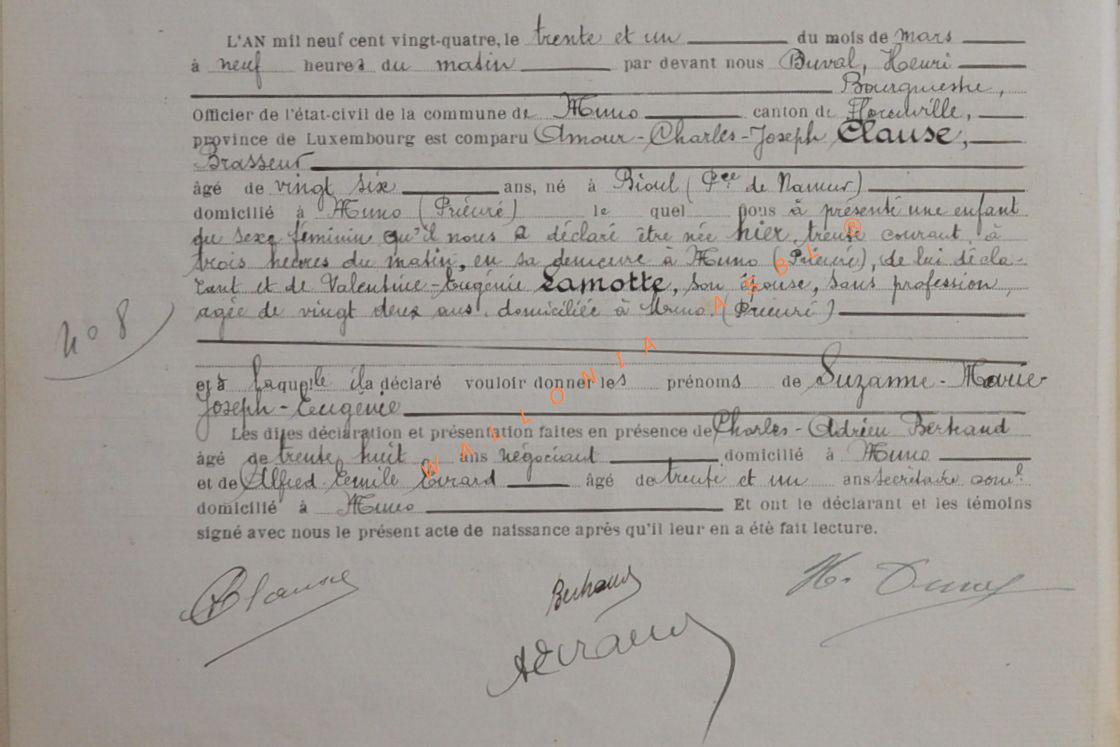 L'AN mil neuf cent vingt-quatre, le trente et un du mois de mars
à neuf heures du matin par devant nous Duval, Henri
Bourgmestre,
Officier de l'état-civil de la commune de Muno canton de Florenville,
province de Luxembourg est comparu Amour-Charles-Joseph Clause,
Brasseur
âgé de vingt six ans, né à Bioul (Pce de Namur)
domicilié à Muno (Prieuré) le quel nous à présenté une enfant
du sexe féminin qu'il nous a déclaré être née hier, trente courant, à
trois heures du matin, en sa demeure à Muno (Prieuré), de lui décla-
rant et de Valentine-Eugénie Lamotte, son épouse, sans profession,
agée de vingt deux ans, domiciliée à Muno (Prieuré)
No 8
et à laquelle il a déclaré vouloir donner les prénoms de Suzanne-Marie-
Joseph-Eugénie
Les dites déclaration et présentation faites en présence de Charles-Adrien Bertrand
âgé de trente huit ans négociant domicilié à Muno
et de Alfred Emile Evrard âgé de trente et un ans secrétaire coml
domicilié à Muno Et ont le déclarant et les témoins
signé avec nous le présent acte de naissance après qu'il leur en a été fait lecture.
AClause Bertrand H. Duval
AEvrard
WALLONIA ASBL ®